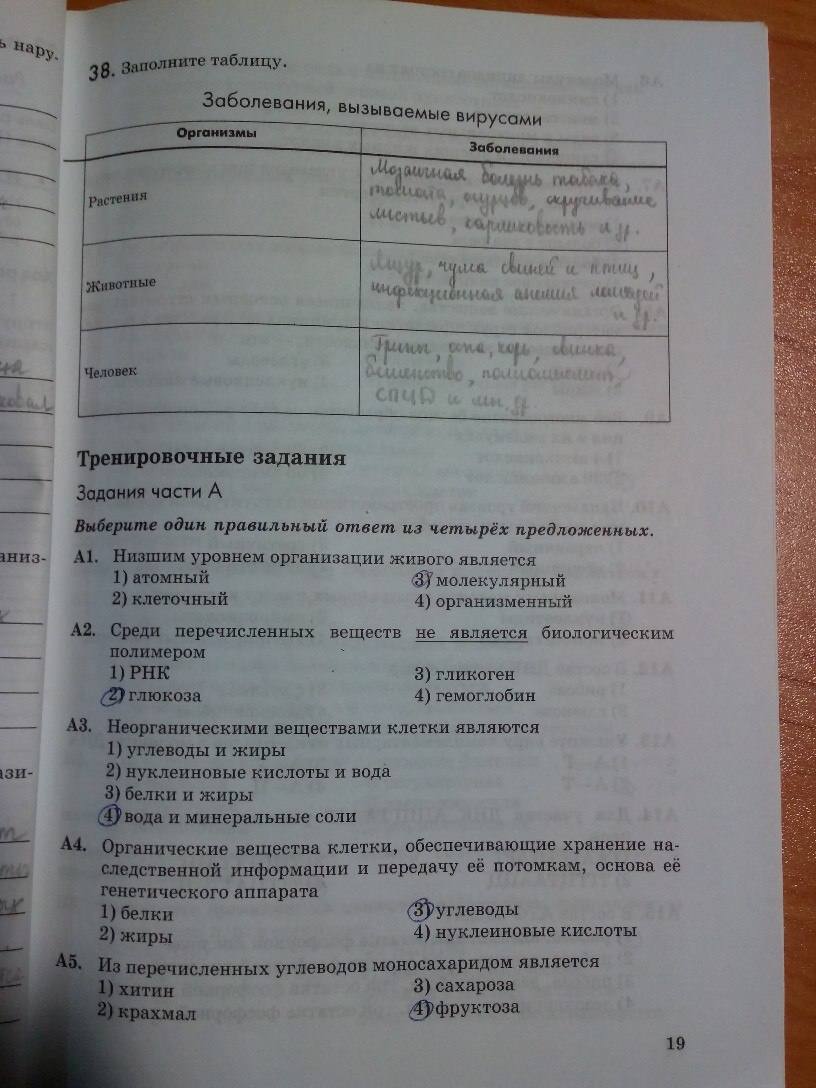 ь нару.
38. Заполните таблицу.
Заболевания, вызываемые вирусами
Организмы Заболевания
Растения
Мозаичная болезнь табака,
томата, огурцов, скручивание
листьев, карликовость и др.
Животные
Ящур, чума свиней и птиц,
инфекционная анемия лошадей
и др.
Человек
Грипп, оспа, корь, свинка,
бешенство, полиомиелит,
СПИД и мн. др.
Тренировочные задания
Задания части А
Выберите один правильный ответ из четырёх предложенных.
А1. Низшим уровнем организации живого является
1) атомный 3) молекулярный
2) клеточный 4) организменный
А2. Среди перечисленных веществ не является биологическим
полимером
1) РНК 3) гликоген
2) глюкоза 4) гемоглобин
А3. Неорганическими веществами клетки являются
1) углеводы и жиры
2) нуклеиновые кислоты и вода
3) белки и жиры
4) вода и минеральные соли
А4. Органические вещества клетки, обеспечивающие хранение на-
следственной информации и передачу её потомкам, основа её
генетического аппарата
1) белки 3) углеводы
2) жиры 4) нуклеиновые кислоты
А5. Из перечисленных углеводов моносахаридом является
1) хитин 3) сахароза
2) крахмал 4) фруктоза
19
аниз-
ази-